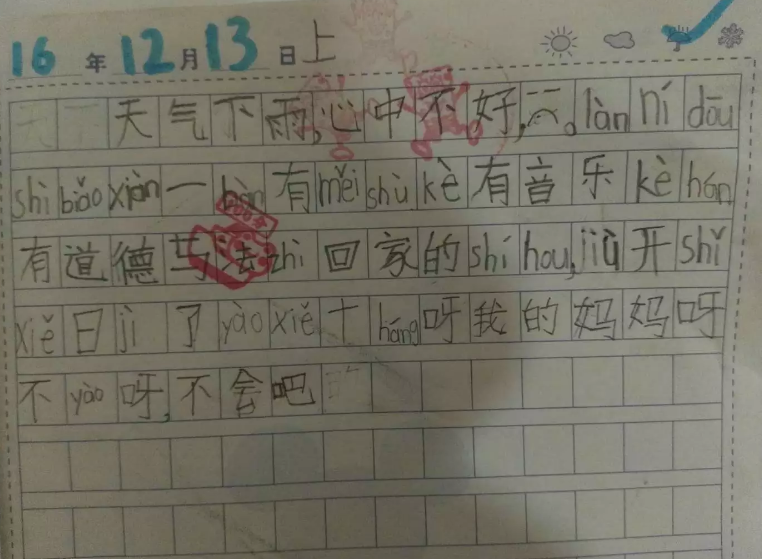 16年12月13日上
天气下雨,心中不好,一六。làn ní dōu
shì biǎo xiàn一hàn有měi shù kè有音乐kè hán
有道德与法zhì回家的shí hou,jiù开shǐ
xiě日jì了yào xiě十háng呀我的妈妈呀
不yào呀,不会吧